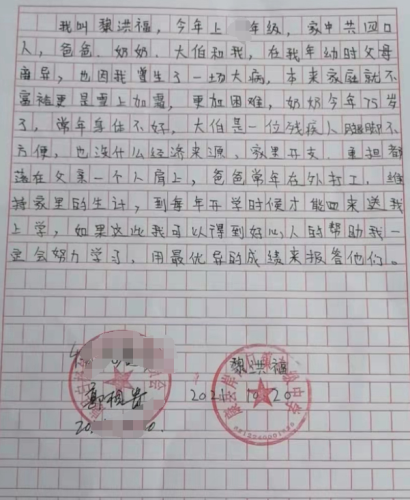 我叫黎洪福，今年上 年级，家中共四口
人，爸爸、奶奶、大伯和我，在我年幼时父母
离异，也因我曾生了一场大病，本来家庭就不
富裕更是雪上加霜，更加困难，奶奶今年75岁
了，常年身体不好，大伯是一位残疾人腿脚不
方便，也没什么经济来源，家里开支、重担都
落在父亲一个人肩上，爸爸常年在外打工，维
持家里的生计，到每年开学时便才能回来送我
上学，如果这此我可以得到好心人的帮助我一
定会努力学习，用最优异的成绩来报答他们。
黎洪福
2021 10 20
20